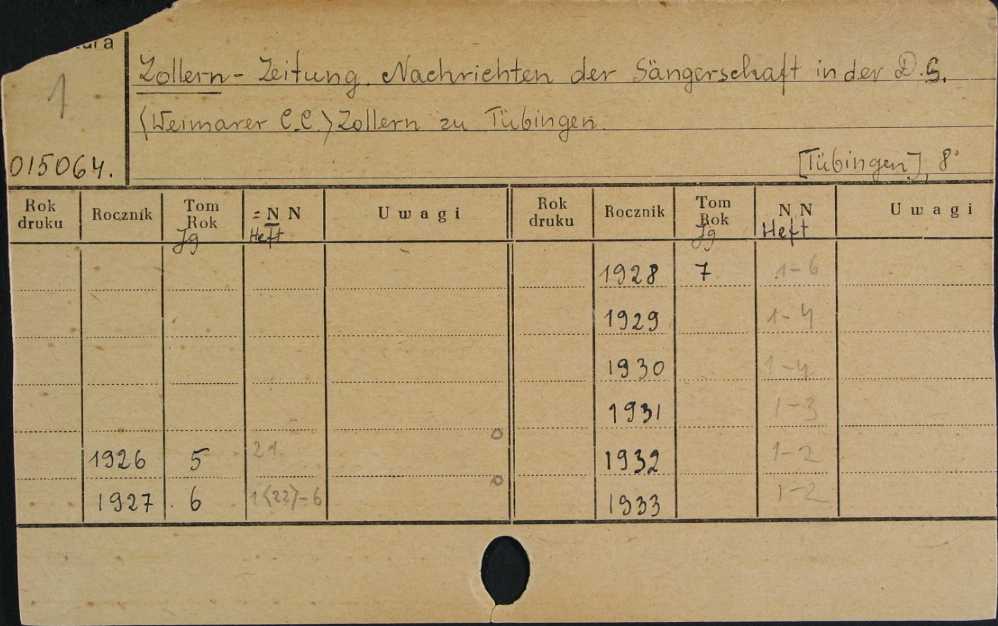 tura
1
015064.
Zollern - Zeitung. Nachrichten der Sängerschaft in der D.S.
(Weimarer C.C.) Zollern zu Tübingen.
[Tübingen], 8°
Rok druku Rocznik Tom Rok Jg = N N Heft Uwagi Rok druku Rocznik Tom Rok Jg N N Heft Uwagi
1928 7 1-6
1929 1-4
1930 1-4
1931 1-3
1926 5 21 1932 1-2
1927 6 1(22)-6 1933 1-2